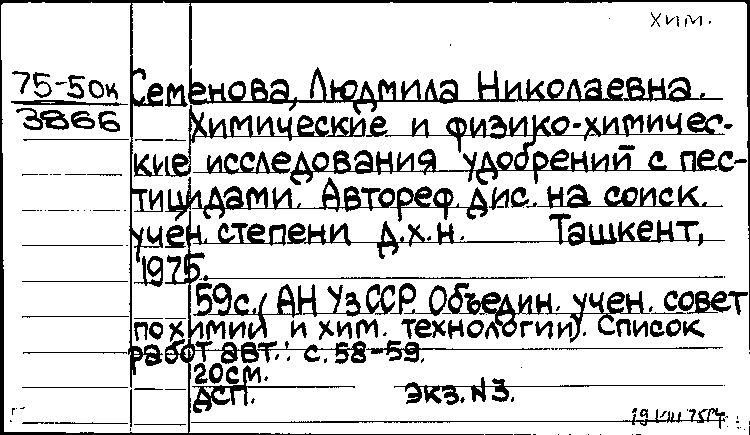 хим.
75-50к Семенова, Людмила Николаевна.
3866 Химические и физико-химичес-
кие исследования удобрений с пес-
тицидами. Автореф. дис. на соиск.
учен. степени д.х.н. Ташкент,
1975.
59с. (АН УзССР. Объедин. учен. совет
по химии и хим. технологии). Список
работ авт.: с. 58-59.
20см.
ДСП. экз. N3.